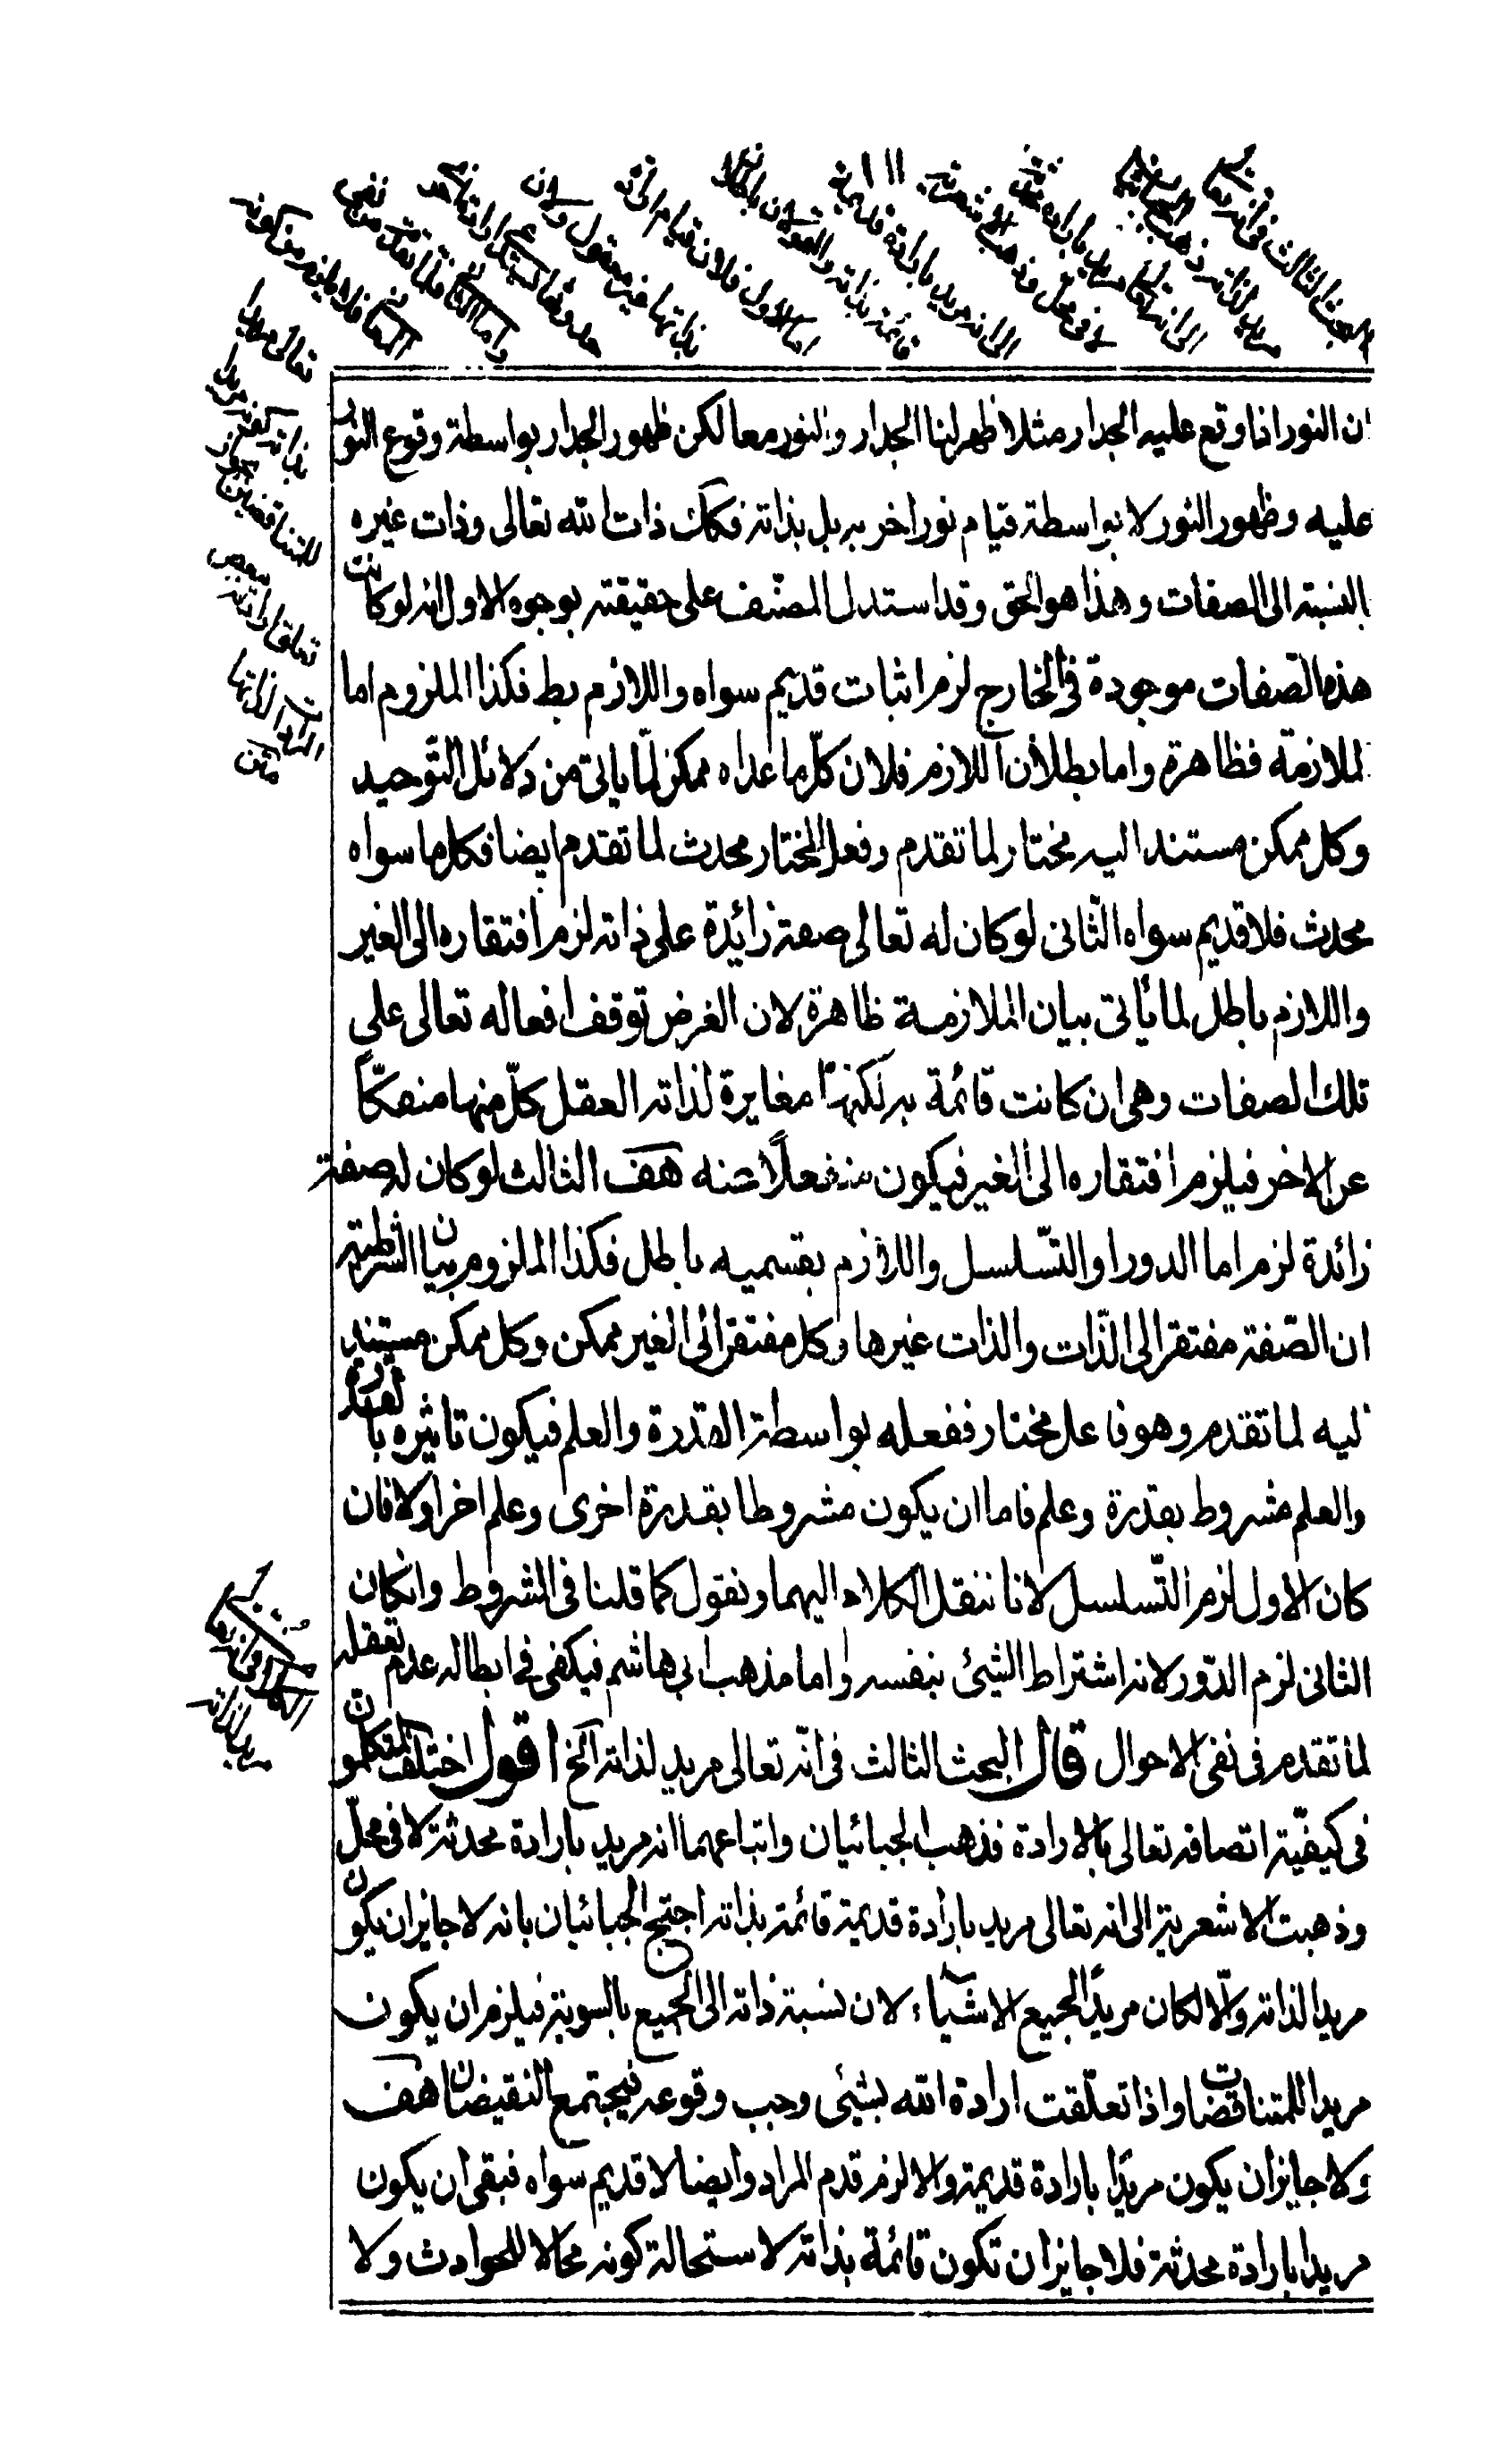 البحث الثالث فى انه تعالى
مريد لذاته ذهب
الى انه تعالى مريد بارادة
لا فى محل وذهب
الى انه مريد بارادة قديمة
قائمة بذاته والقولان باطلان
اما الاول فلان قيام
بذاتها غير معقول ولان
واما الثانى فلما تقدم من نفى
المعانى فلا يلزم من كونه
تعالى مريدا
بذاته كونه مريدا
للمتناقضين
تعلق ارادته ببعض
المرادات لذاتها
متن
ان النور اذا وقع عليه الجدار مثلا ظهر لنا الجدار والنور معا لكن ظهور الجدار بواسطة وقوع النور
عليه وظهور النور لا بواسطة قيام نور اخر به بل بذاته فكك ذات الله تعالى وذات غيره
بالنسبة الى الصفات وهذا هو الحق وقد استدل المصنّف على حقيقته بوجوه الاول انه لو كانت
هذه الصّفات موجودة فى الخارج لزم اثبات قديم سواه واللازم بط فكذا الملزوم اما
الملازمة فظاهرة واما بطلان اللازم فلان كلّ ما عداه ممكن لما ياتى من دلائل التّوحيد
وكل ممكن مستند اليه مختار لما تقدم وفعل المختار محدث لما تقدم ايضا فكل ما سواه
محدث فلا قديم سواه الثّانى لو كان له تعالى صفة زائدة على ذاته لزم افتقاره الى الغير
واللازم باطل لما يأتى بيان الملازمة ظاهرة لان الغرض توقف افعاله تعالى على
تلك الصفات وهى ان كانت قائمة به لكنها مغايرة لذاته العقل كلّ منهما منفكّاً
عن الاخر فيلزم افتقاره الى الغير فيكون منفعلاً عنه هف الثالث لو كان له صفة
زائدة لزم اما الدور او التسّلسل واللازم بقسميه باطل فكذا الملزوم بيان الشرطية
ان الصّفة مفتقرة الى الذّات والذات غيرها وكل مفتقر الى الغير ممكن وكل ممكن مستند
اليه لما تقدم وهو فاعل مختار ففعله بواسطة القدرة والعلم فيكون تاثيره بالقدرة
والعلم مشروط بقدرة وعلم فاما ان يكون مشروطا بقدرة اخرى وعلم اخر او لا فان
كان الاول لزم التّسلسل لانا ننقل الكلام اليهما ونقول كما قلنا فى الشروط وانكان
الثانى لزم الدّور لانه اشتراط الشيئ بنفسه واما مذهب ابى هاشم فيكفى فى ابطاله عدم تعقله
لما تقدم فى نفى الاحوال قال البحث الثالث فى انّه تعالى مريد لذاته آلخ اقول اختلف المتكلمون
فى كيفيّة اتصافه تعالى بالارادة فذهب الجبائيان واتباعهما انه مريد بارادة محدثة لا فى محلّ
وذهبت الاشعرية الى انه تعالى مريد بارادة قديمة قائمة بذاته احتج الجبائيان بانه لا جايز ان يكون
مريدا لذاته والّا لكان مريدًا لجميع الاشياء لان نسبة ذاته الى الجميع بالسوية فيلزم ان يكون
مريدا للمتناقضات واذا تعلّقت ارادة الله بشيئ وجب وقوعه فيجتمع النقيضان هف
ولا جايز ان يكون مريدًا بارادة قديمة والا لزم قدم المراد وايضا لا قديم سواه فبقى ان يكون
مريدا بارادة محدثة فلا جايز ان تكون قائمة بذاته لاستحالة كونه محلا للحوادث ولا